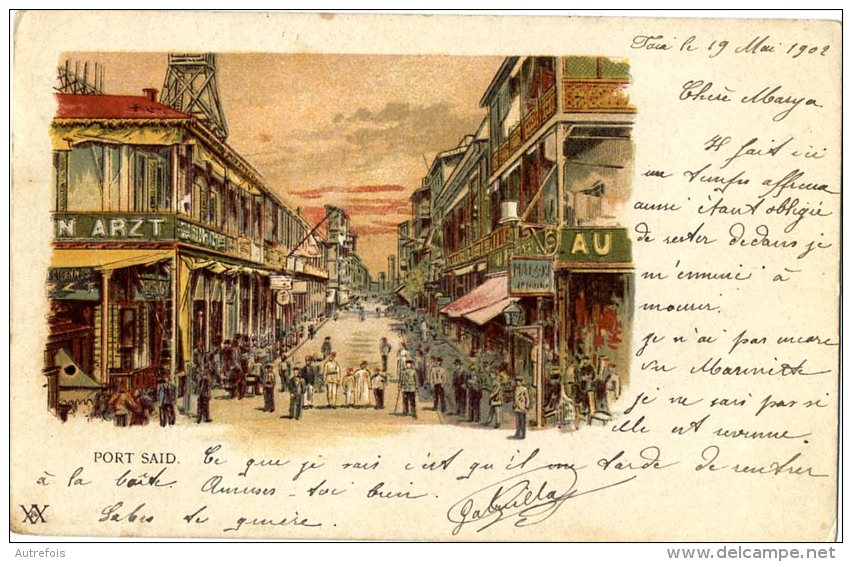 19 Mai 1902
Chère Marya
Il fait ici
un temps affreux
aussi étant obligée
de rester dedans je
m'ennuie à
mourir.
je n'ai pas encore
vu Marinette
je ne sais pas si
elle est revenue.
N ARZT
AU
PORT SAID.
Ce que je sais c'est qu'il me tarde de rentrer
à la boîte. Amuses-toi bien.
te
Autrefois
www.delcampe.net